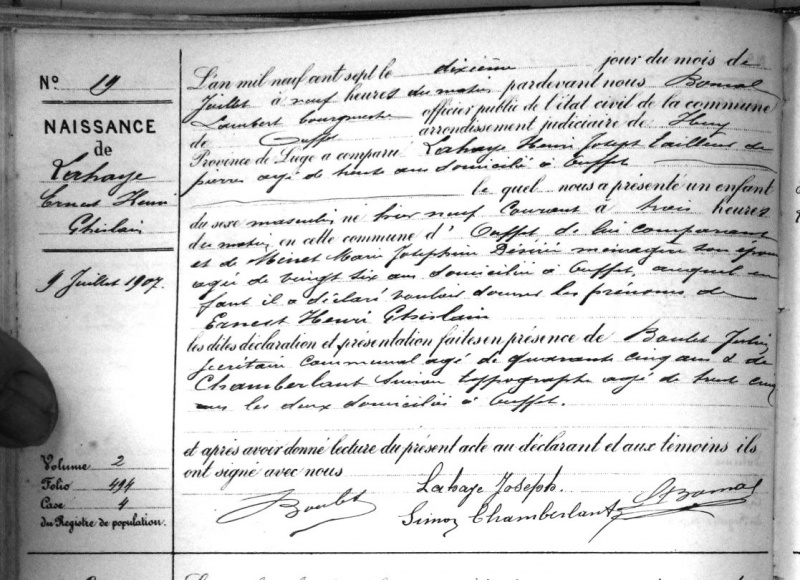 Nº 19
NAISSANCE
de
Lahaye
Ernest Henri
Ghislain
9 Juillet 1907.
Volume 2
Folio 494
Case 4
du Registre de population.
L'an mil neuf cent sept le dixième jour du mois de
Juillet à neuf heures du matin pardevant nous Bomal
Lambert bourgmestre officier public de l'état civil de la commune
de Ouffet arrondissement judiciaire de Huy
Province de Liége a comparu Lahaye Henri Joseph tailleur de
pierres agé de trente ans domicilié à Ouffet
le quel nous a présenté un enfant
du sexe masculin né hier neuf courant à trois heures
du matin en cette commune d'Ouffet de lui comparant
et de Minet Marie Joséphine Désirée ménagère son épouse
agée de vingt six ans domiciliée à Ouffet, auquel en
fant il a déclaré vouloir donner les prénoms de
Ernest Henri Ghislain
les dites déclaration et présentation faites en présence de Boulet Julien
secrétaire communal agé de quarante cinq ans & de
Chamberlant Simon typographe agé de trente cinq
ans les deux domiciliés à Ouffet.
et après avoir donné lecture du présent acte au déclarant et aux témoins ils
ont signé avec nous
Lahaye Joseph.
Boulet Simon Chamberlant LBomal